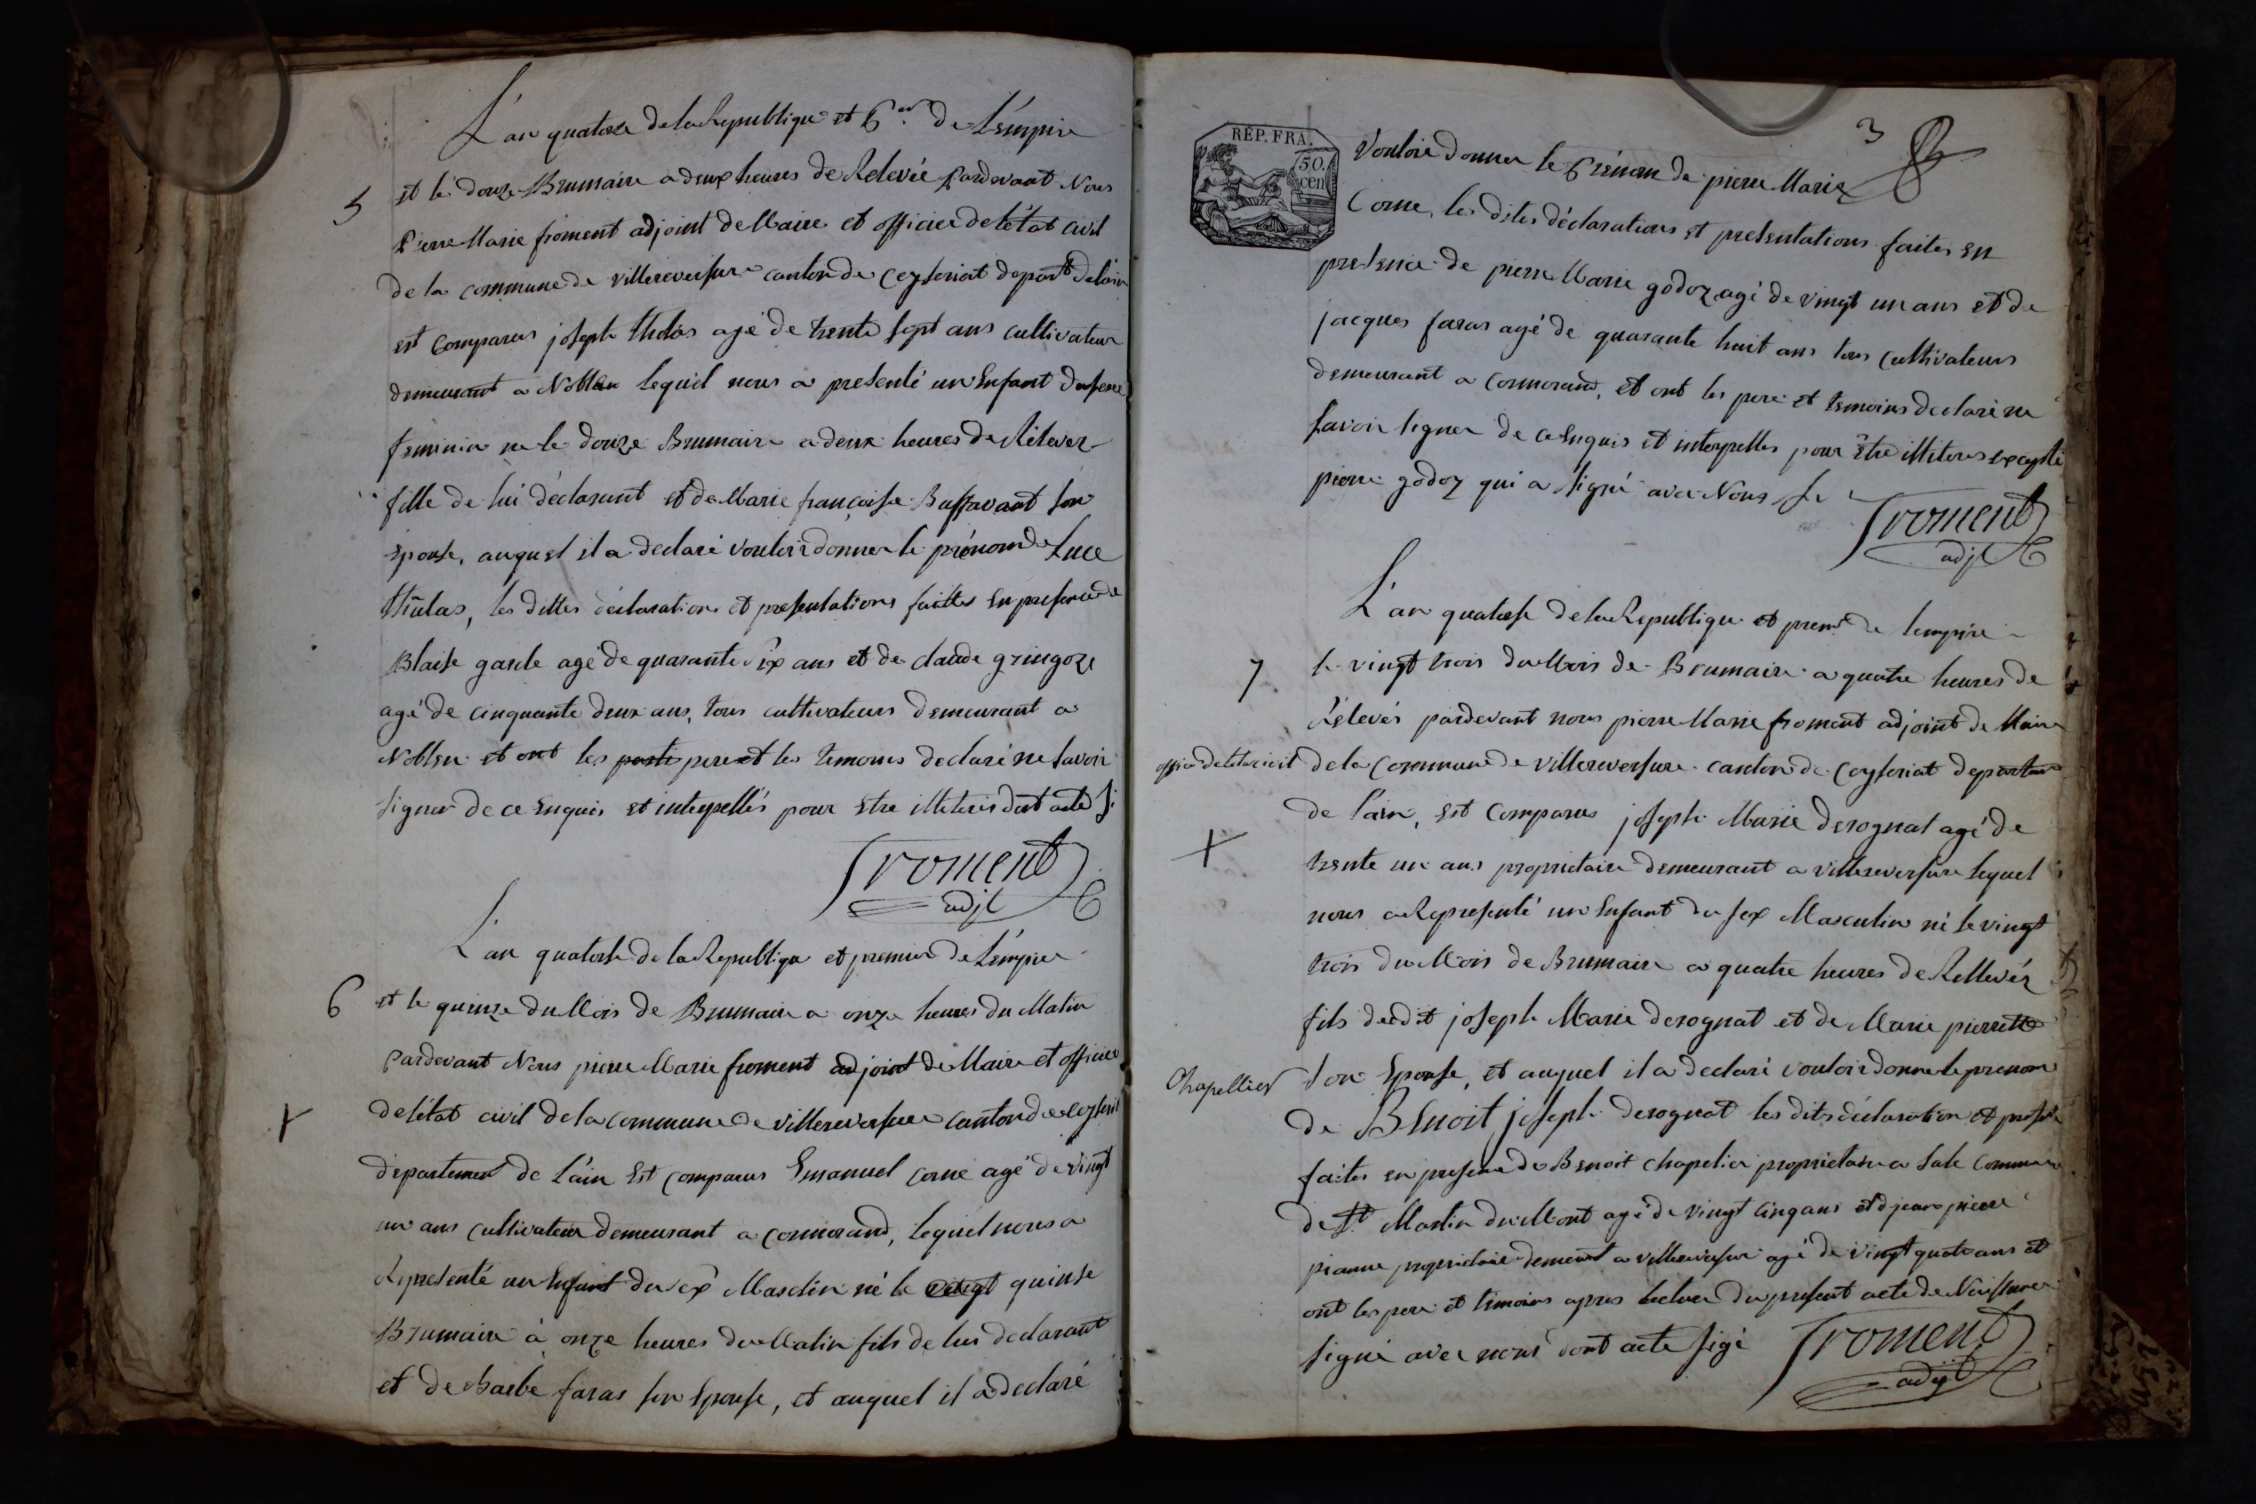 L'an quatorze de la Republique et 1er. de L'empire
5
et le douze Brumaire a deux heures de Relevée Pardevant Nous
Pierre Marie froment adjoint de Maire et officier de létat civil
de la commune de villereversure canton de Ceyseriat depart.t de lain
est Comparus joseph thulas agé de trente sept ans cultivateur
demeurant a Noblen lequel nous a presenté un Enfant du sexe
feminin ne le douze Brumaire a deux heures de Relevez
fille de lui déclarant et de Marie françoise Buffavant son
Epouse, auquel il a declaré vouloir donner le prénom de Luce
thulas, les dittes déclarations et presentations faittes en presence de
Blaise garde agé de quarante six ans et de claude gringoze
agé de cinquante deux ans, tous cultivateurs demeurant a
Noblen et ont les pere et les temoins declaré ne savoir
signer de ce Enquis et interpellés pour Etre illiterés dont acte
froment
adjt
L'an quatorse de la Republique et premier de L'empire
6
et le quinze du Mois de Brumaire a onze heures du Matin
Pardevant Nous pierre Marie froment adjoint de Maire et officier
de létat civil de la commune de villereversure canton de ceyseriat
departement de L'ain Est comparus Emanuel corne agé de vingt
un ans cultivateur demeurant a cormorand, lequel nous a
Represénté un Enfant du sex Masclin né le vingt quinse
Brumaire à onze heures du Matin fils de lui declarant
et de Barbe faras son Epouse, et auquel il a declaré
3
RÉP. FRA.
50.
cen
vouloir donner le Prénom de pierre Marie
Corne, les dites déclarations et presentations faites en
presence de pierre Marie godoz agé de vingt un ans et de
jacques faras agé de quarante huit ans tous cultivateurs
demeurant a cormorand, et ont les pere et temoins declaré ne
savoir signer de ce Enquis et interpelles pour être illiteres excepté
pierre godoz qui a signé avec Nous
froment
adjt
L'an quatorse de la Republique et premr de lempire
7
le vingt trois du Mois de Brumaire a quatre heures de
Rélevés pardevant nous pierre Marie froment adjoint de Maire
officier de letat civil
de la commune de villereversure canton de Ceyseriat departem
de l'ain, est comparus joseph Marie derognat agé de
trente un ans proprietaire demeurant a villereversure lequel
nous a Represénté un Enfant du sex Masculin né le vingt
trois du Mois de Brumaire a quatre heures de Rellevéz
fils dudit joseph Marie derognat et de Marie pierrette
Chapellier
son Epouse, et auquel il a declaré vouloir donner le prenom
de Benoit joseph derognat les dits déclaration et
faites en presence de Benoit chapelier proprietaire a Sale Commune
de St Martin du Mont agé de vingt cinq ans et djean pierre
pianne proprietaire demeurt a villereversure agé de vingt quatre ans et
ont les pere et témoins apres lecture du present acte de Naissance
signé avec nous dont acte
froment
adjt